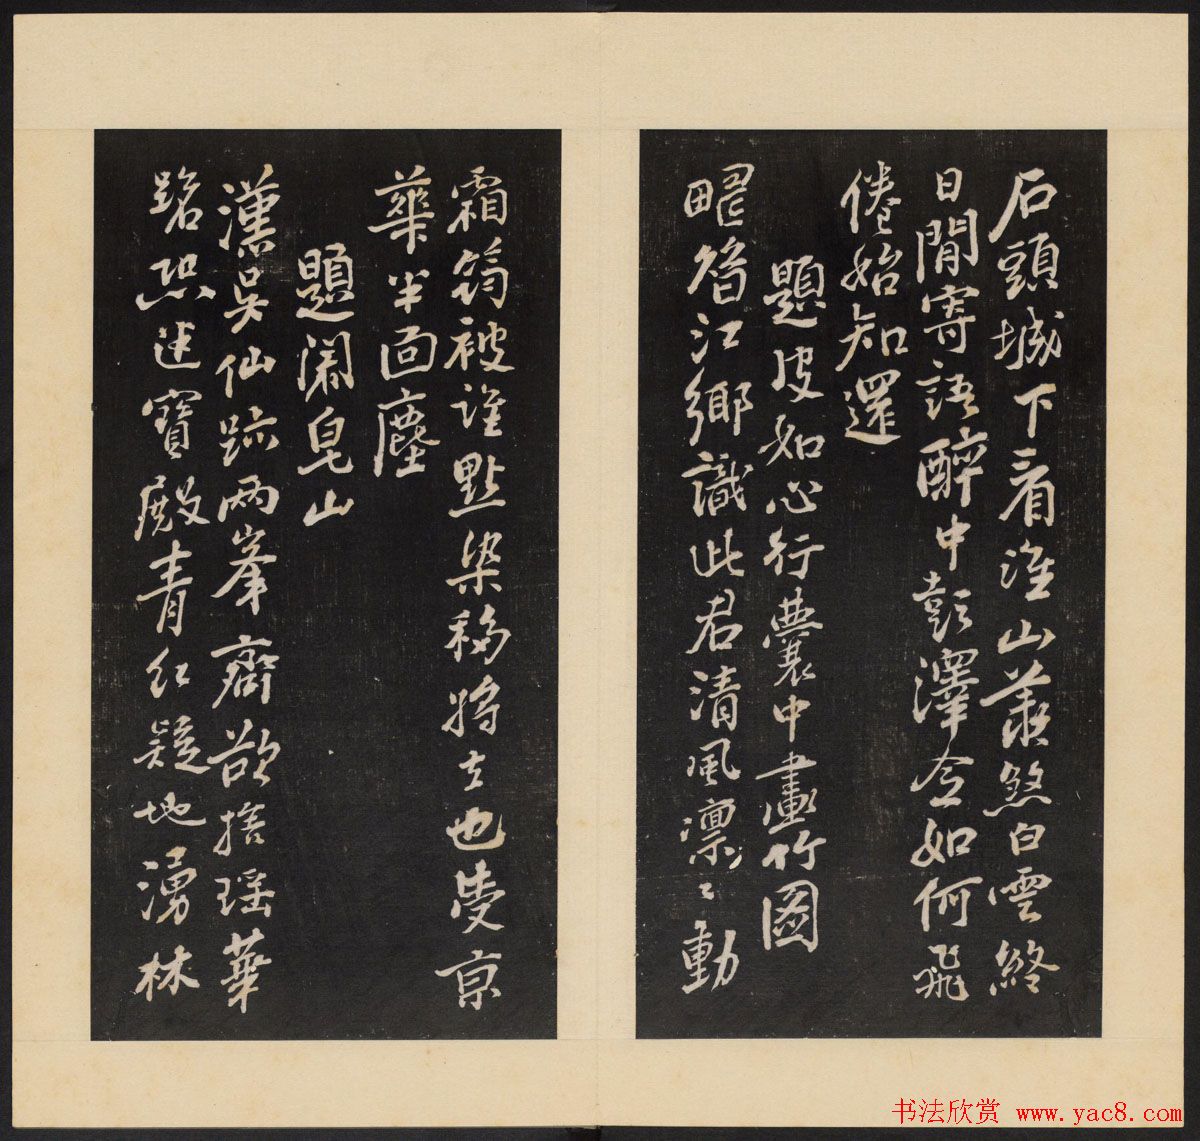 石頭城下看淮山叢煞白雲終
日閒寄語醉中彭澤令如何飛
倦始知還
題皮如心行囊中畫竹圖
江鄉識此君清風凛〻動
霜筠被誰點染移將去也受京
華半面塵
題閣皂山
漢吳仙跡兩峯齋欲捨瑤華
路恐迷寶殿青紅疑地湧林
书法欣赏 www.yac8.com